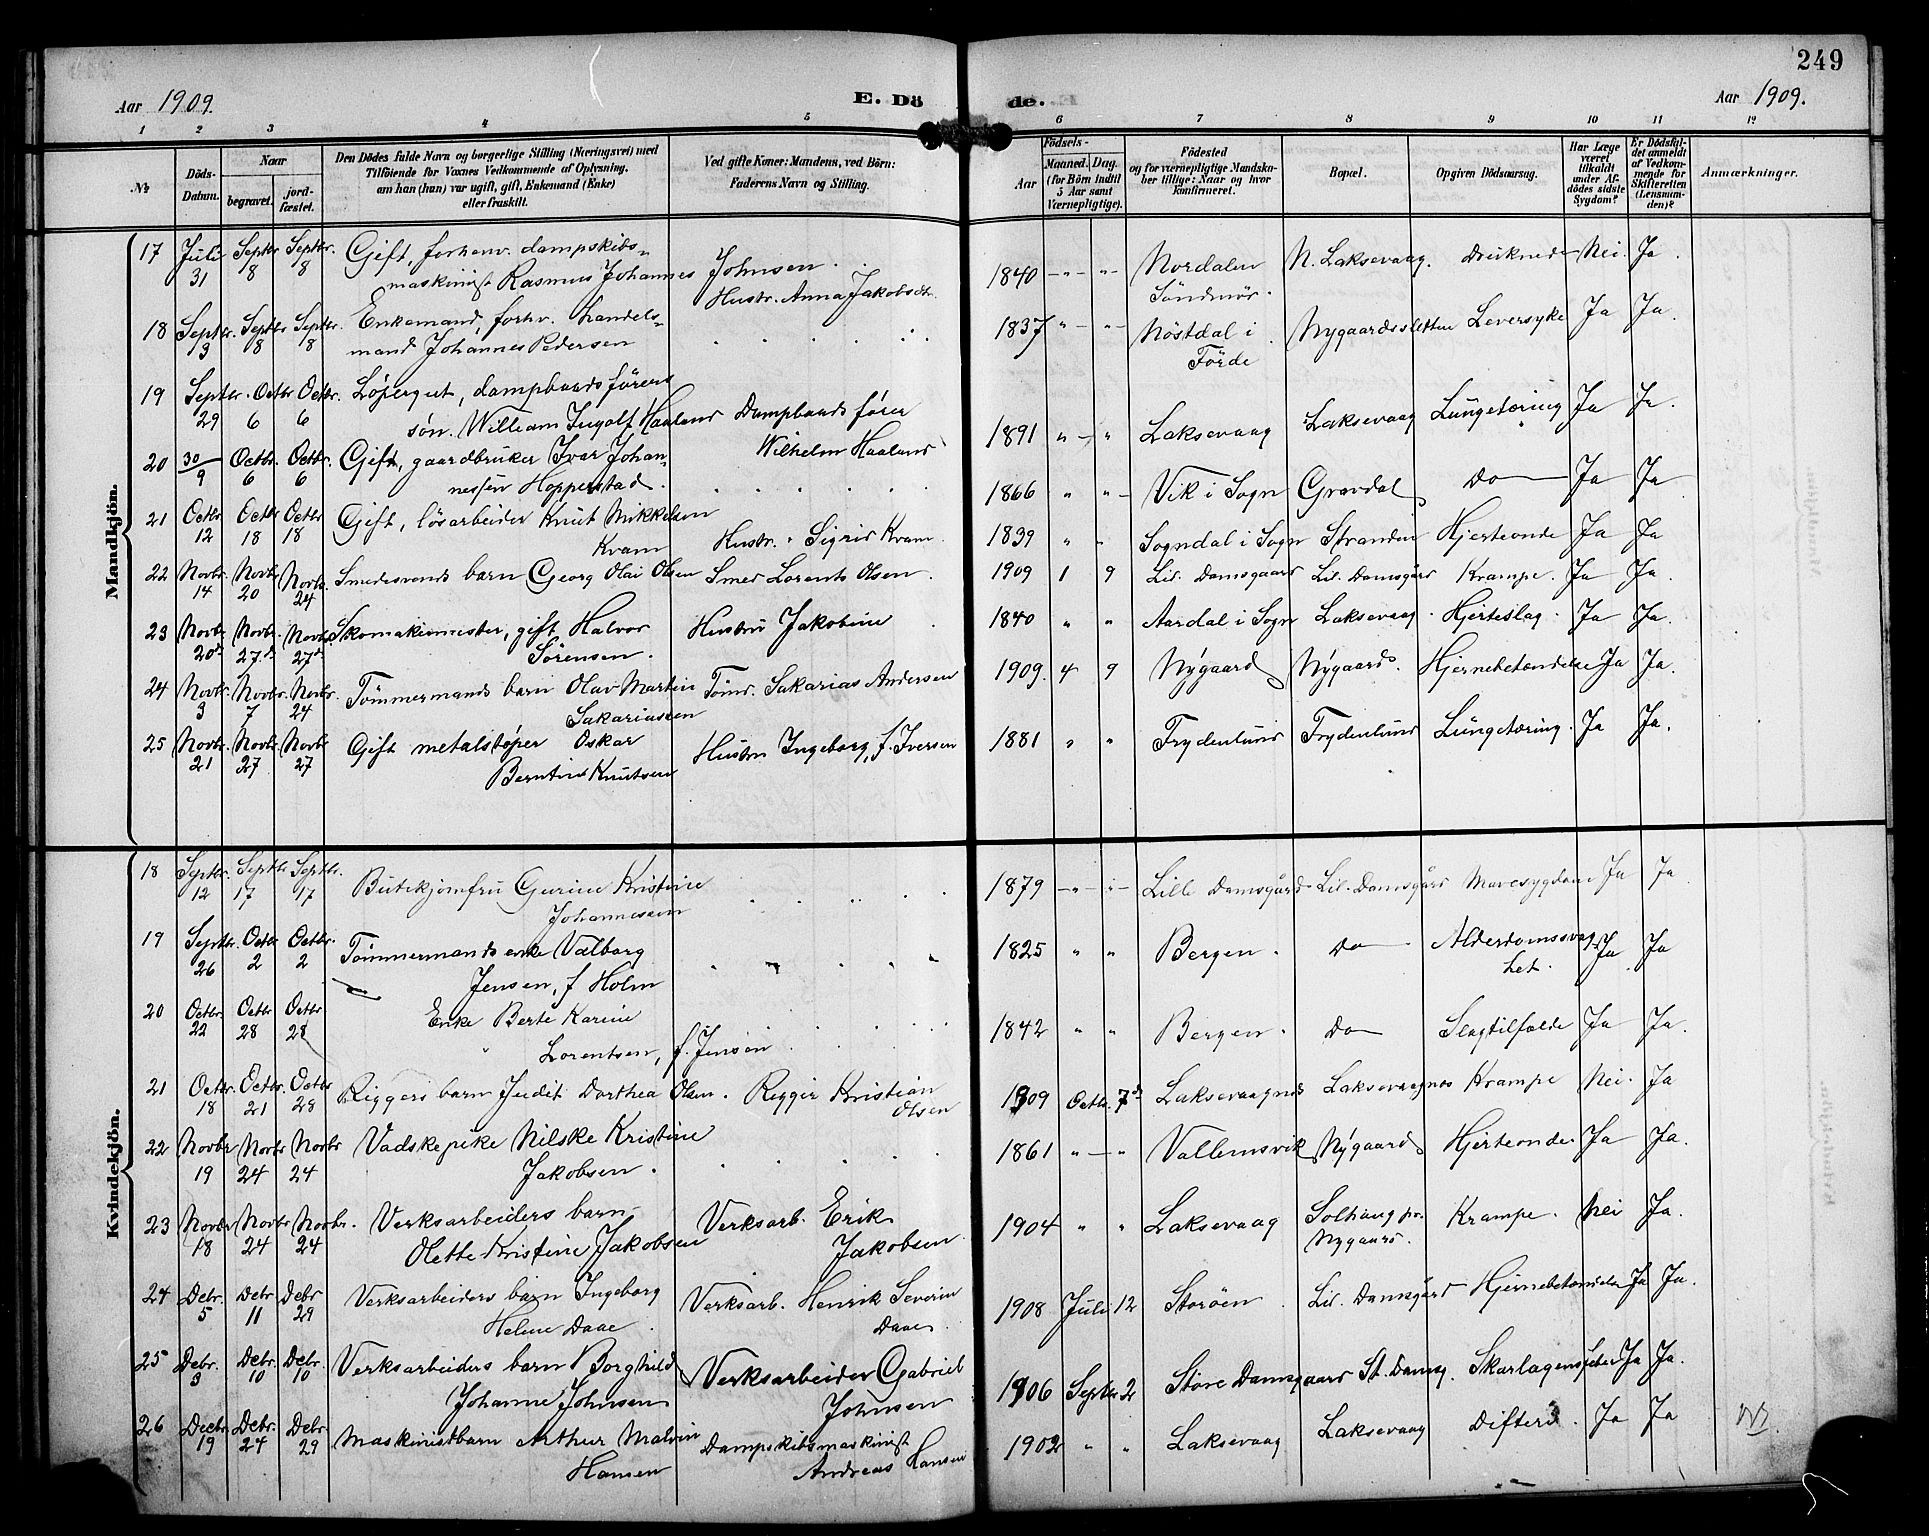 249
Aar 1909. E. Dö de. Aar 1909.
1 2 3 4 5 6 7 8 9 10 11 12
№ Döds-Datum. Naar begravet. jord-fæstet.
Den Dödes fulde Navn og borgerlige Stilling (Næringsvei) med
Tilföiende for Voxnes Vedkommende af Oplysning,
om han (hun) var ugift, gift, Enkemand (Enke)
eller fraskilt.
Ved gifte Koner: Mandens, ved Börn:
Faderens Navn og Stilling.
Födsels-
Aar Maaned. Dag.
(for Börn indtil
5 Aar samt
Værnepligtige).
Födested
og for værnepligtige Mandska-
ber tillige: Naar og hvor
konfirmeret.
Bopæl.
Opgiven Dödsaarsag.
Har Læge
været
tilkaldt
under Af-
dödes sidste
Sygdom?
Er Dödsfal-
det anmeldt
af Vedkom-
mende for
Skifteretten
(Lensman-
den)?
Anmærkninger.
Mandkjön.
17 Juli Septbr Septbr. Gift, forhenv. dampskibs- Nordalen N. Laksevaag. Druknede Nei. Ja.
31 8 8 maskinist Rasmus Johannes Johnsen. 1840 - " - " - Söndmör.
Hustr. Anna Jakobsdtr.
18 Septbr. Septbr Septbr. Enkemand, forhv. handels- 1837 " - " - Nöstdal i Nygaardssletten Leversyke Ja Ja.
3 8 8 mand Johannes Pedersen Förde
19 Septbr. Octbr Octbr. Löpergut, dampbaadsförers
29 6 6 sön. William Ingolf Haaland Dampbaadsförer 1891 " - " Laksevaag Laksevaag Lungetæring Ja Ja.
Wilhelm Haaland
20 30/9 Octbr. Octbr. Gift, gaardbruker Ivar Johan-
6 6 nessen Hopperstad. 1866 " " - Vik i Sogn Gravdal Do Ja Ja
21 Octbr Octbr Octbr Gift, lösarbeider Knut Mikkelsen
12 18 18 Kvam Hustr. Sigrid Kvam 1839 " " Sogndal i Sogn Stranden Hjerteonde Ja Ja
22 Novbr. Novbr. Novbr. Smedesvends barn Georg Olai Olsen Smed Lorents Olsen. 1909 1 9 Lil. Damsgaard Lil. Damsgård Krampe. Ja Ja.
14 20 24
23 Novbr Novbr. Novbr. Skomakermester, gift Halvor Hustru Jakobine 1840 " " Aardal i Sogn Laksevaag. Hjerteslag. Ja Ja.
20de 27.de 27de Sörensen.
24 Novbr. Novbr. Novbr. Tömmermands barn Olav Martin Tömr. Sakarias Andersen 1909. 4 9 Nygaard Nygaard. Hjernebetændelse Ja Ja.
3 7 24 Sakariassen
25 Novbr. Novbr. Novbr Gift metalstöper Oskar Hustru Ingeborg, f. Iversen 1881 " " Frydenlund Frydenlund Lungetæring. Ja Ja.
21 27 27 Berntin Knutsen
Kvindekjön.
18 Septbr. Septbr Septbr. Butikjomfru Gurine Kristine 1879 - " - " - Lille Damsgård Lil. Damsgård Mavesygdom Ja Ja
12 17 17 Johannessen
19 Septbr. Octbr Octbr. Tömmermands enke Valborg 1825 " " Bergen. Do Alderdomssvag- Ja Ja
26 2 2 Jensen, f Holm het.
20 Octbr. Octbr Octbr Enke Berte Karine 1842 " " Bergen. Do Slagtilfælde Ja Ja.
22 28 28 Lorentsen, f. Jensen
21 Octbr. Octbr. Octbr Riggers barn Judit Dorthea Olsen. Rigger Kristian 1909 Octbr. 7de Laksevaagnes Laksevaagnes Krampe Nei. Ja
18 21 28 Olsen
22 Novbr Novbr Novbr Vadskepike Nilske Kristine 1861 " - " Vallemsvik Nygaard Hjerteonde. Ja Ja.
19 24 24 Jakobsen.
23 Novbr Novbr Novbr. Verksarbeiders barn Verksarb. Erik 1904 " " Laksevaag Solhaug pr. Krampe. Nei Ja.
18 24 24 Olette Kristine Jakobsen Jakobsen Nygaard.
24 Debr. Debr Debr Verksarbeiders barn Ingeborg Verksarb. Henrik Severin 1908 Juli 12 Storöen Lil. Damsgård Hjernebetændelse Ja Ja.
5 11 29 Helene Daae. Daae.
25 Debr. Debr. Debr. Verksarbeiders barn Borghild Verksarbeider Gabriel 1906 Septbr 2 Store Damsgaard St. Damsg. Skarlagensfeber Ja Ja.
3 10 10 Johanne Johnsen Johnsen
26 Decbr. Debr. Debr. Maskinistbarn Arthur Malvin Dampskibsmaskinist 1902 " " Laksevaag Laksevaag Difteri. Ja Ja
19 24 29 Hansen Andreas Hansen